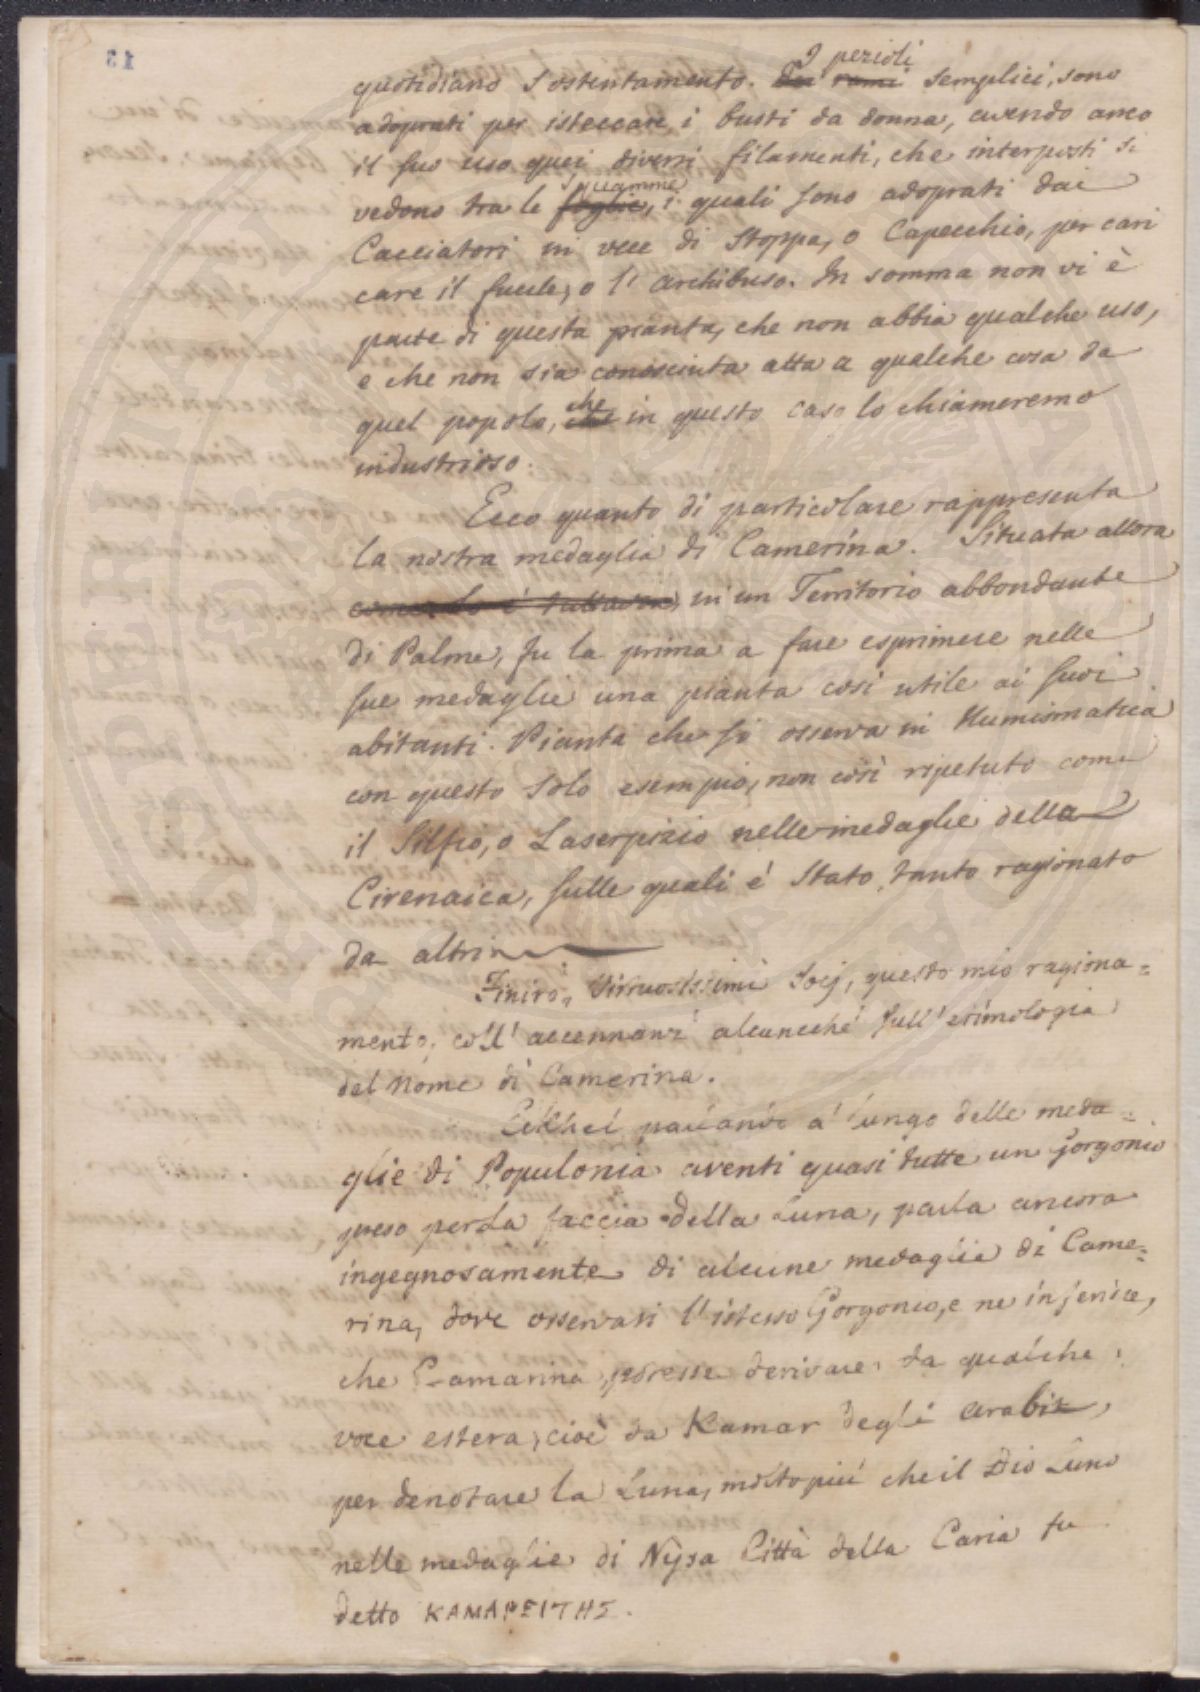 quotidiano sostentamento. Dei rami I pezioli semplici, sono
adoprati per isteccare i busti da donna, avendo anco
il suo uso quei diversi filamenti, che interposti si
vedono tra le foglie squamme, i quali sono adoprati dai
Cacciatori in vece di Stoppa, o Capecchio, per cari
care il fucile, o l'archibuso. In somma non vi è
parte di questa pianta, che non abbia qualche uso,
e che non sia conosciuta atta a qualche cosa da
quel popolo, che in questo caso lo chiameremo
industrioso.
Ecco quanto di particolare rappresenta
la nostra medaglia di Camerina. Situata allora
come lo è tuttavia, in un Territorio abbondante
di Palme, fu la prima a fare esprimere nelle
sue medaglie una pianta così utile ai suoi
abitanti. Pianta che si osserva in Numismatica
con questo solo esempio, non così ripetuto come
il Silfio, o Laserpizio nelle medaglie della
Cirenaica, sulle quali é stato tanto ragionato
da altri
Finirò, Virtuosissimi Socj, questo mio ragiona=
mento, coll'accennarvi alcunché sull'etimologia
del Nome di Camerina.
Eckhel parlando a lungo delle meda=
glie di Populonia aventi quasi tutte un Gorgonio
preso per la faccia della Luna, parla ancora
ingegnosamente di alcune medaglie di Came=
rina, dove osservasi l'istesso Gorgonio, e ne inferisce,
che Camarina potesse derivare da qualche
voce estera, cioè da Kamar degli Arabi,
per denotare la Luna, molto più che il Dio Luno
nelle medaglie di Nysa Città della Caria fu
detto ΚΑΜΑΡΕΙΤΗΣ.